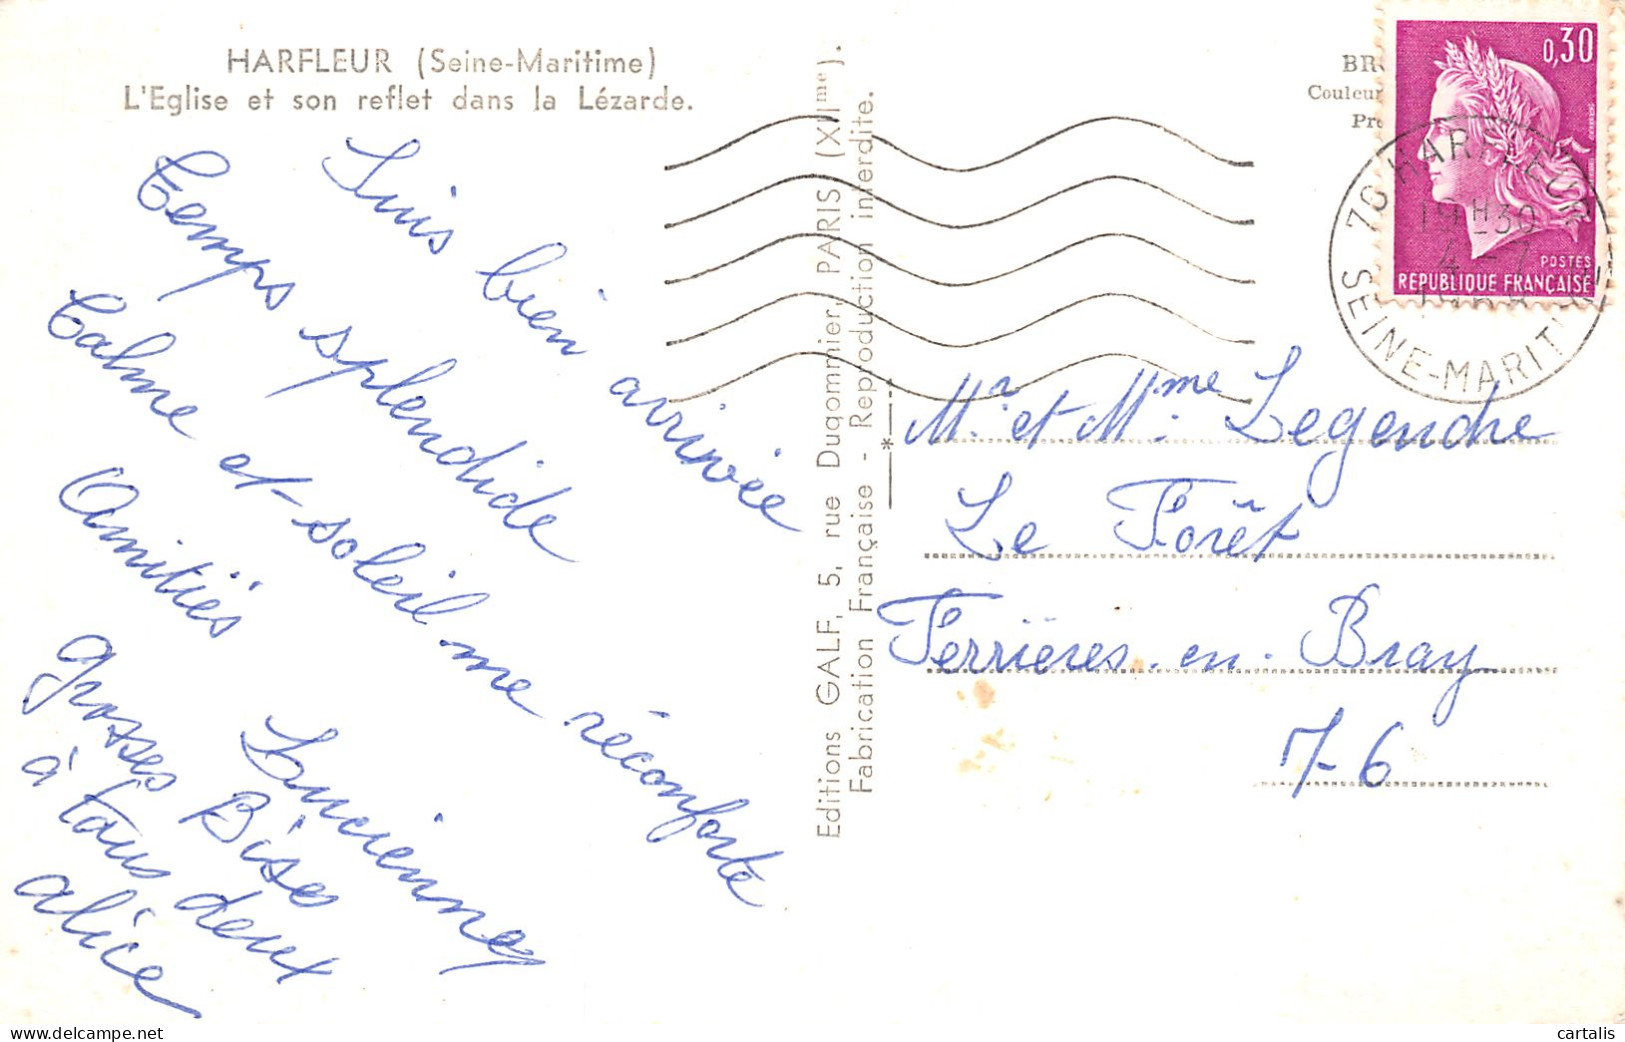 HARFLEUR (Seine-Maritime)
L'Eglise et son reflet dans la Lézarde.
Suis bien arrivée
Temps splendide
Calme et soleil me réconforte
Amitiés
Lucienne
Grosses Bises
à tous deux
alice
Editions GALF, 5, rue Dugommier, PARIS (XIIme).
Fabrication Française - Reproduction interdite.
BR
Couleur
Pr
0,30
POSTES
REPUBLIQUE FRANÇAISE
76 HARFLEUR
19H30
4-7
SEINE-MARITIME
Mr et Mme Legendre
Le Forêt
Ferrières-en-Bray
76
www.delcampe.net
cartalis